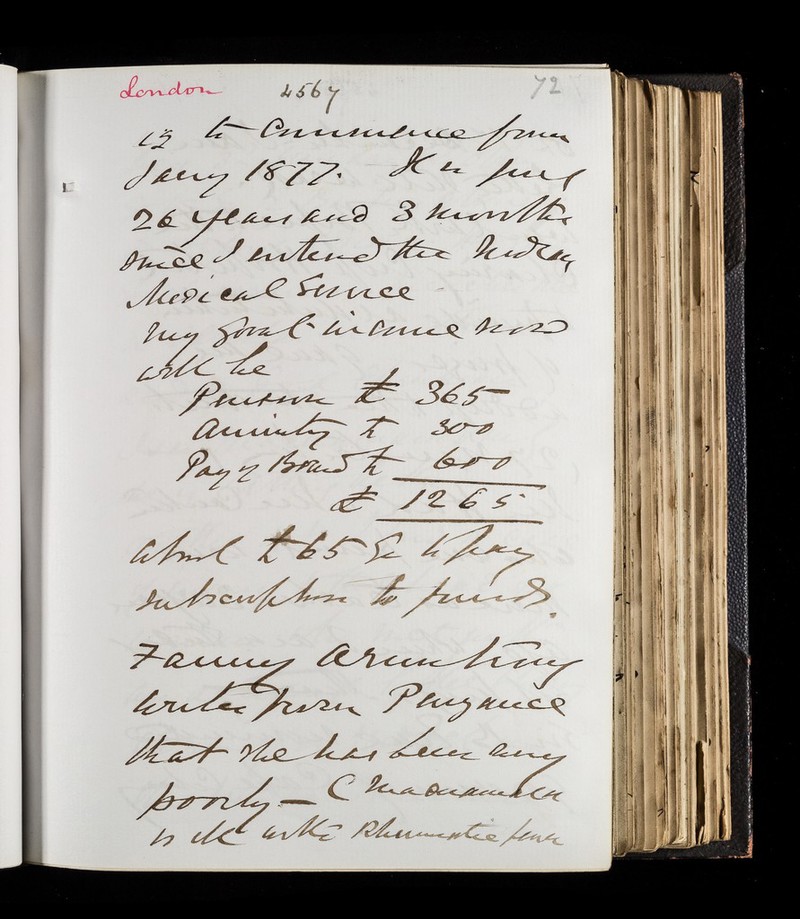 London 4567 72
is to Commence from
Jany 1877. It is just
26 years and 3 months
since I entered the Indian
Medical Service
my total income now
will be
Pension £ 365
Annuity £ 300
Pay of Board £ 600
£ 1265
about £ 65 to pay
subscription to funds.
Fanny Armstrong
writes from Penzance
that she has been very
poorly — C Macnamara
is ill with Rheumatic fever